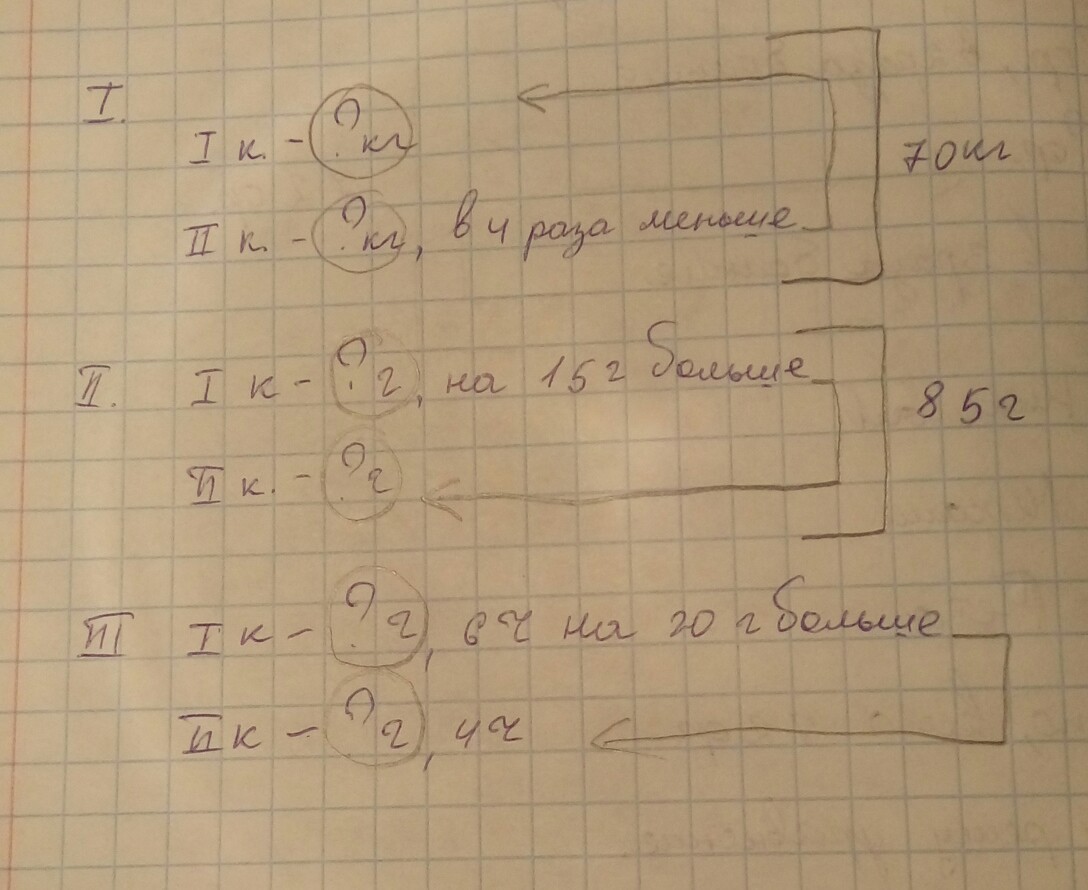 I.
I к. - ? кг
70 кг
II к. - ? кг, в 4 раза меньше
II. I к - ? г, на 15 г больше
85 г
II к. - ? г
III I к - ? г, 6 ч на 20 г больше
II к - ? г, 4 ч